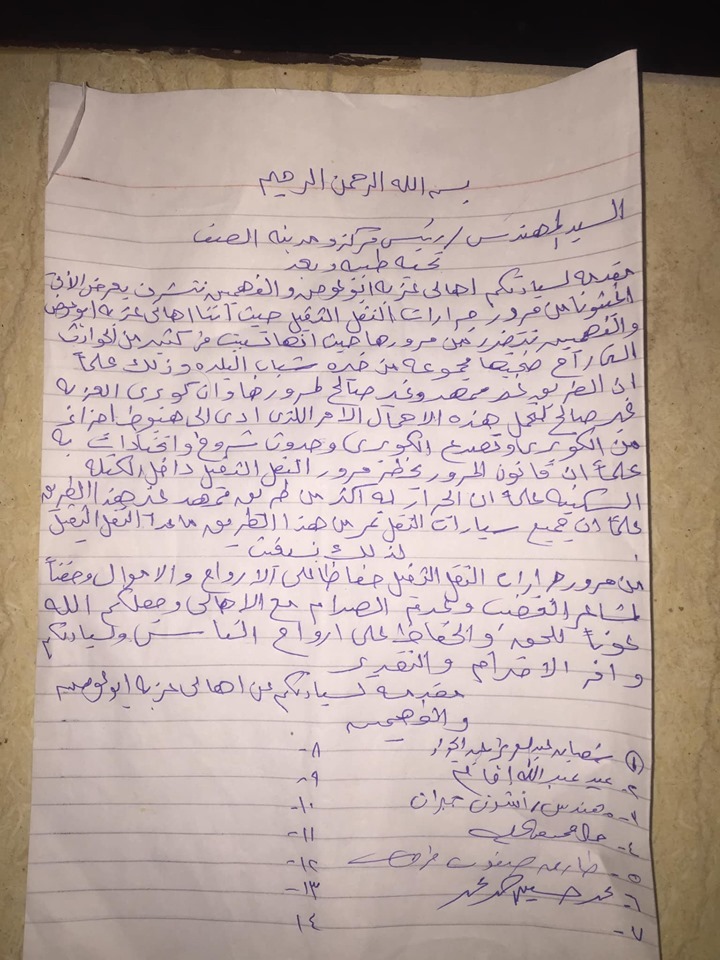 بسم الله الرحمن الرحيم
السيد المهندس / رئيس مركز ومدينه الصف
تحيه طيبه وبعد
مقدمه لسيادتكم اهالى عزبه ابوعوض والفهمين نتشرف بعرض الاتى
من مرور جرارات النقل الثقيل حيث اننا اهالى عزبه ابوعوض
والفهمين نتضرر من مرورها حيث انها تسببت فى كثير من الحوادث
التى راح ضحيتها مجموعه من خيره شباب البلده وذلك علماً
ان الطريق غير ممهد وغير صالح لمرورها وان كوبرى العزبه
غير صالح لتحمل هذه الاحمال الامر اللذى ادى الى هبوط اجزاء
من الكوبرى وتصدع الكوبرى وحدوث شروخ به
علماً ان قانون المرور يحظر مرور النقل الثقيل داخل الكتله
السكنيه علماً ان له اكثر من طريق ممهد غير هذا الطريق
علماً ان جميع سيارات النقل تمر من هذا الطريق ماعدا النقل الثقيل
لذلك
من مرور جرارات النقل الثقيل حفاظا على الارواح والاموال
لمشاعر الغضب وعدم الصدام مع الاهالى وجعلكم الله
عوناً للحق والحفاظ على ارواح الناس ولسيادتكم
وافر الاحترام والتقدير
مقدمه لسيادتكم من اهالى عزبه ابوعوض
والفهمين
١- شعبان عبدالعزيز عبدالجواد
٨-
٢- عيد عبدالله
٩-
٣- مهندس /
١٠-
٤-
١١-
٥- طارق
١٢-
٦- محمد حسين محمد
١٣-
٧-
١٤